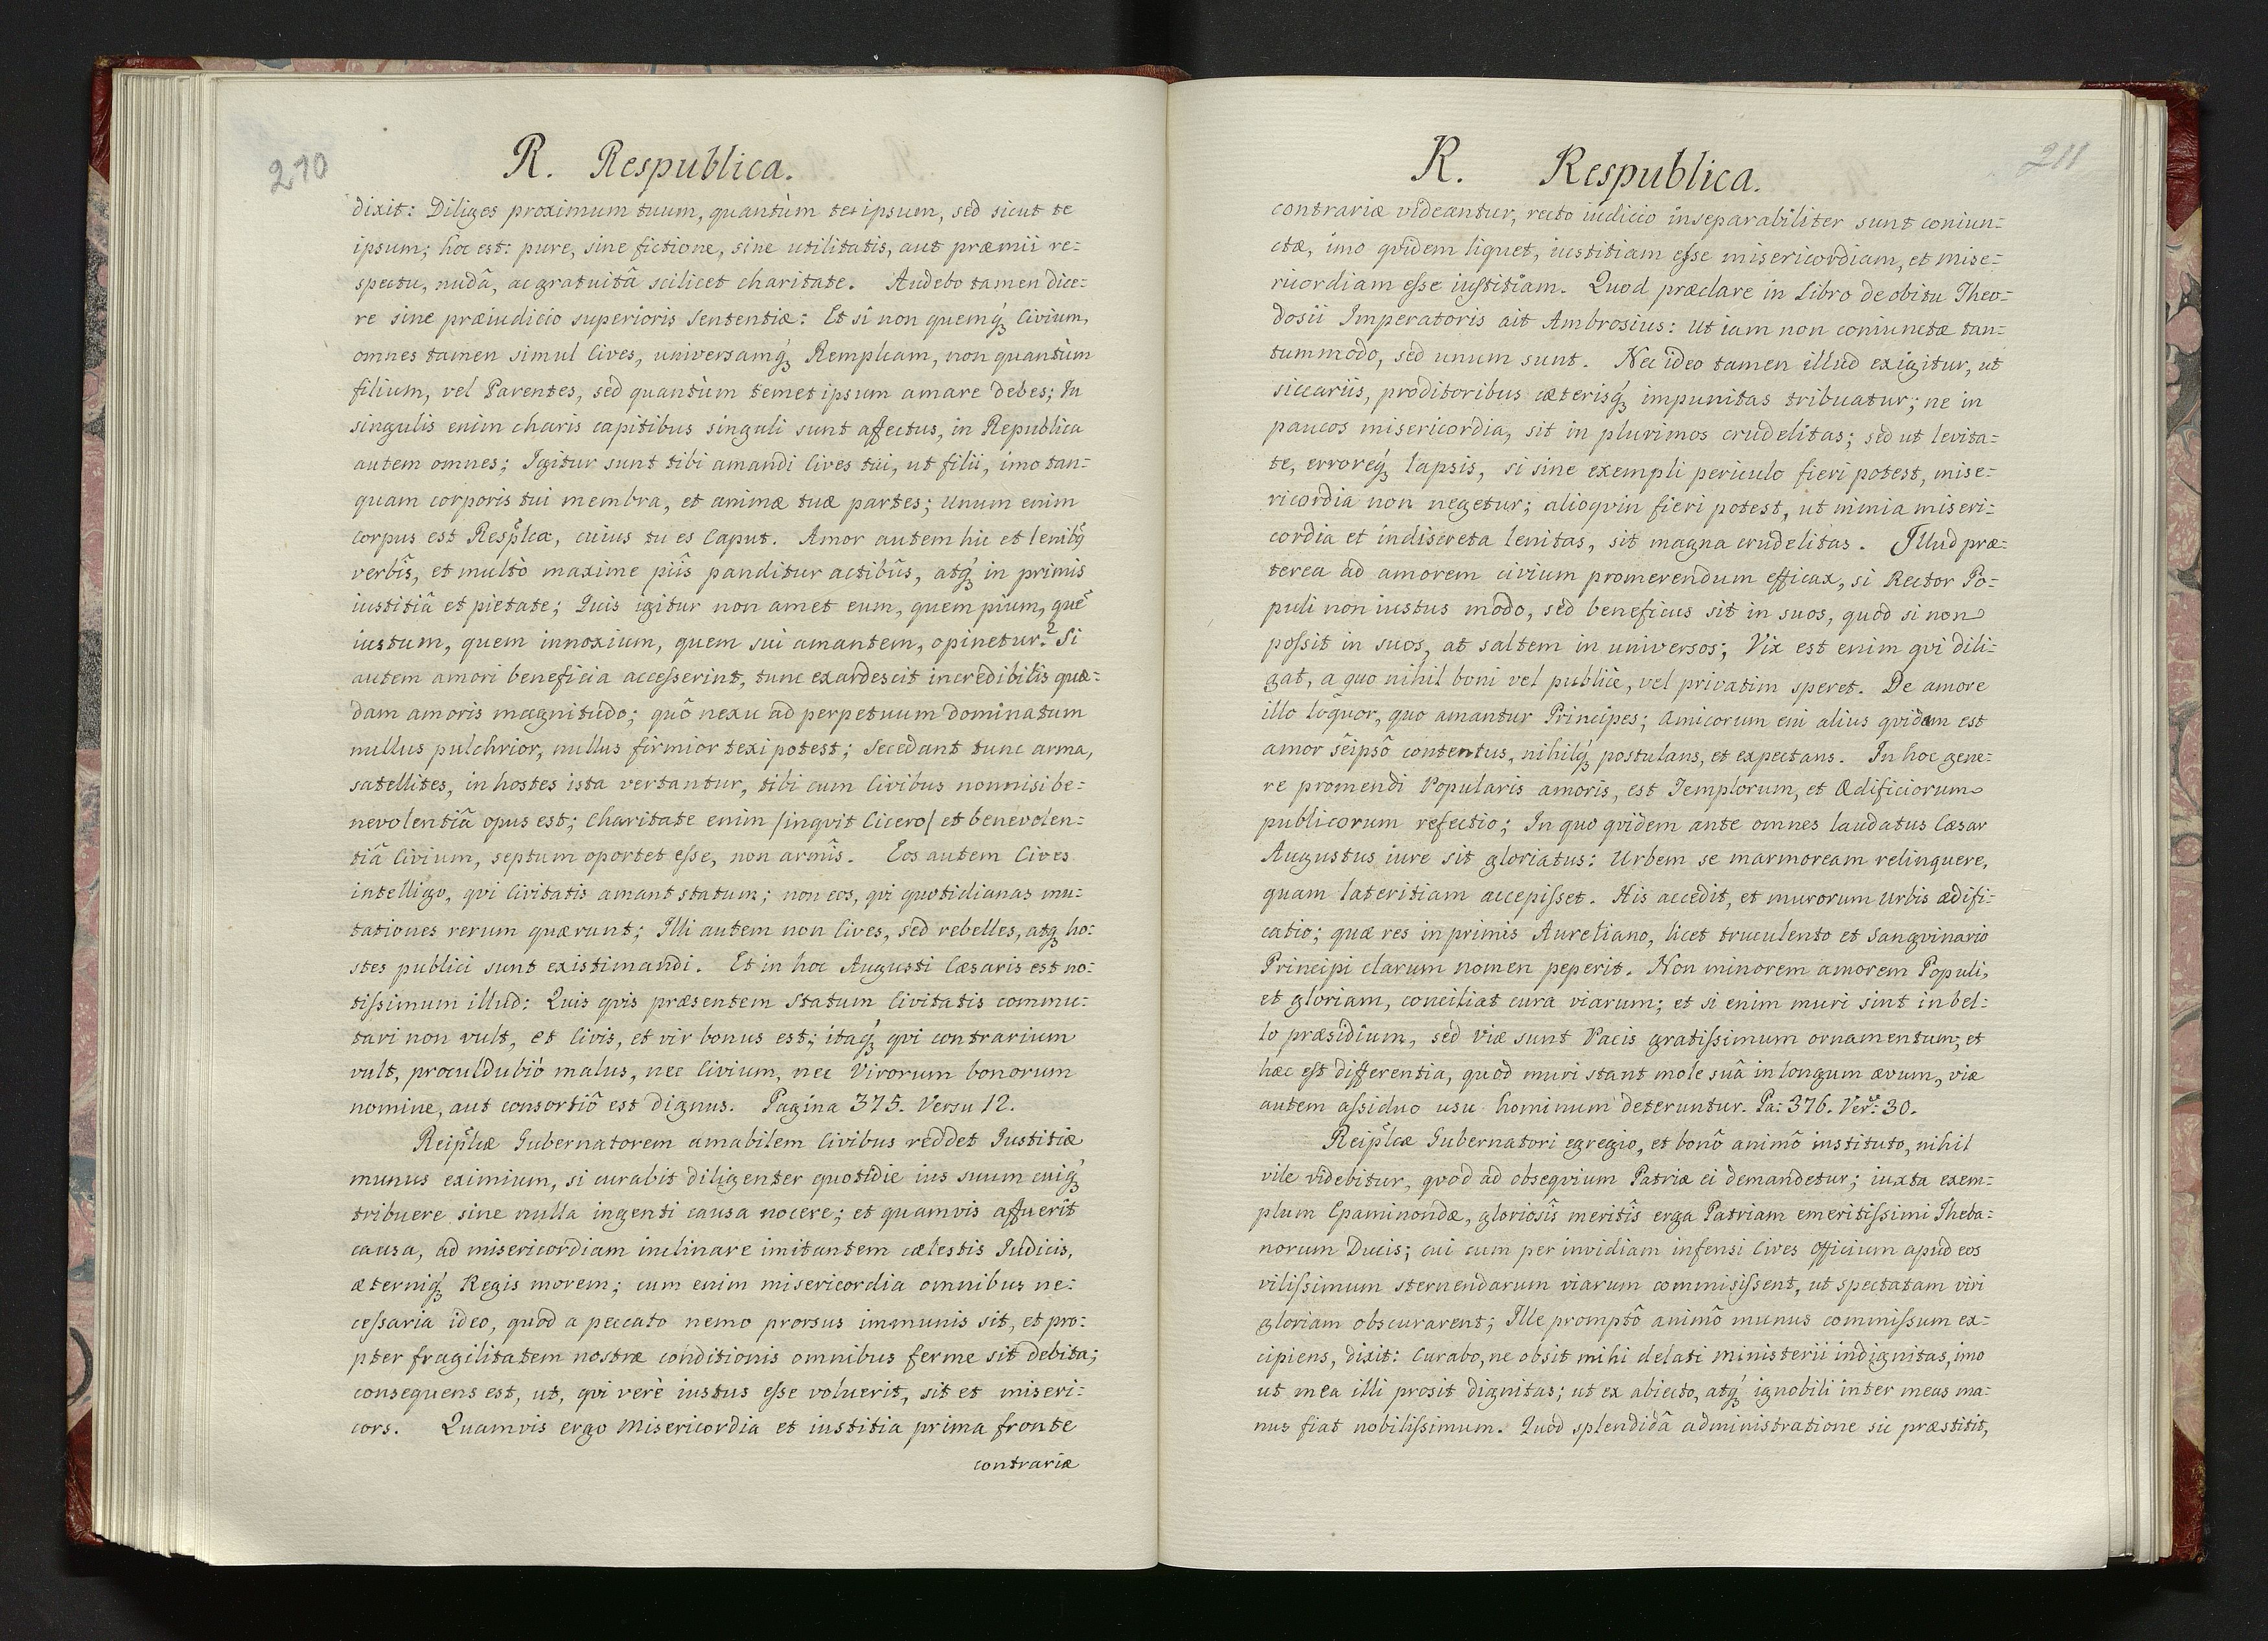 210
R. Respublica.
dixit: Diliges proximum tuum, quantùm te ipsum, sed sicut te
ipsum; hoc est: pure, sine fictione, sine utilitatis, aut præmii re=
spectu, nudâ, ac gratuitâ scilicet charitate. Audebo tamen dice=
re sine præiudicio superioris sententiæ: Et si non quemq́ꝫ Civium,
omnes tamen simul Cives, universamq́ꝫ Rempleam, non quantùm
filium, vel Parentes, sed quantùm temet ipsum amare debes; In
singulis enim charis capitibus singuli sunt affectus, in Republica
autem omnes; Igitur sunt tibi amandi Cives tui, ut filii, imo tan=
quam corporis tui membra, et animæ tuæ partes; Unum enim
corpus est Resp̃lca, cuius tu es Caput. Amor autem hic et lenibꝫ
verbîs, et multò maxime piîs panditur actibûs, atq́ꝫ in primis
iustitiâ et pietate; Quis igitur non amet eum, quem pium, quẽ
iustum, quem innoxium, quem sui amantem, opinetur? Si
autem amori beneficia acceſserint, tunc exardescit incredibilis quæ=
dam amoris magnitudo; quô nexu ad perpetuum dominatum
nullus pulchrior, nullus firmior texi potest; Secedant tunc arma,
satellites, in hostes ista vertantur, tibi cum Civibus nonnisi be=
nevolentiâ opus est; Charitate enim /inqvit Cicero/ et benevolen=
tiâ Civium, septum oportet eſse, non armîs. Eos autem Cives
intelligo, qvi Civitatis amant statum; non eos, qvi quotidianas mu=
tationes rerum quærunt; Illi autem non Cives, sed rebelles, atqꝫ ho=
stes publici sunt existimandi. Et in hoc Augusti Cæsaris est no=
tiſsimum illud: Quis qvis præsentem statum Civitatis commu=
tari non vult, et Civis, et vir bonus est; itaq́ꝫ qvi contrarium
vult, proculdubiò malus, nec Civium, nec Virorum bonorum
nomine, aut consortiô est dignus. Pagina 375. Versu 12.
Reip̃lcæ Gubernatorem amabilem Civibus reddet Iustitiæ
munus eximium, si curabit diligenter quotidie ius suum cuiq́ꝫ
tribuere sine nulla ingenti causa nocere; et quamvis affuerit
causa, ad misericordiam inclinare imitantem cælestis Iudicis,
æterniq́ꝫ Regis morem; cum enim misericordia omnibus ne=
ceſsaria ideo, quod a peccato nemo prorsus immunis sit, et pro=
pter fragilitatem nostræ conditionis omnibus ferme sit debita;
consequens est, ut, qvi verè iustus eſse voluerit, sit et miseri=
cors. Quamvis ergo Misericordia et iustitia prima fronte
contrariæ
211
R. Respublica.
contrariæ videantur, recto iudicio inseparabiliter sunt coniun=
ctæ, imo qvidem liquet, iustitiam eſse misericordiam, et mise=
ricordiam eſse iuſtitiam. Quod præclare in Libro de obitu Theo=
dosii Imperatoris ait Ambrosius: Ut iam non coniunctæ tan=
tummodo, sed unum sunt. Nec ideo tamen illud exigitur, ut
siccariis, proditoribus cæterisq́ꝫ impunitas tribuatur; ne in
paucos misericordia, sit in plurimos crudelitas; sed ut levita=
te, erroreq́ꝫ lapsis, si sine exempli periculo fieri potest, mise=
ricordia non negetur; alioqvin fieri potest, ut nimia miseri=
cordia et indiscreta lenitas, sit magna crudelitas. Illud præ=
terea ad amorem civium promerendum efficax, si Rector Po=
puli non iustus modo, sed beneficus sit in suos, quod si non
poſsit in suos, at saltem in universos; Vix est enim qvi dili=
gat, a quo nihil boni vel publicè, vel privatim speret. De amore
illo loquor, quo amantur Principes; Amicorum eni alius qvidem est
amor seipsô contentus, nihilq́ꝫ postulans, et expectans. In hoc gene=
re promendi Popularis amoris, est Templorum, et Ædificiorum
publicorum refectio; In quo qvidem ante omnes laudatus Cæsar
Augustus iure sit gloriatus: Urbem se marmoream relinquere,
quam lateritiam accepiſset. His accedit, et murorum Urbis ædifi=
catio; quæ res inprimis Aureliano, licet truculento et sangvinario
Principi clarum nomen peperit. Non minorem amorem Populi,
et gloriam, conciliat cura viarum; et si enim muri sint in bel=
lo præsidium, sed viæ sunt Pacis gratiſsimum ornamentum; et
hæc eſt differentia, quod muri stant mole suâ in longum ævum, viæ
autem aſsiduo usu hominum deteruntur. Pa: 376. Ver: 30.
Reip̃lcæ Gubernatori egregio, et bonô animô instituto, nihil
vile videbitur, qvod ad obseqvium Patriæ ei demandetur; iuxta exem=
plum Epaminondæ, gloriosîs meritîs erga Patriam emeritiſsimi Theba=
norum Ducis; cui cum per invidiam infensi Cives Officium apud eos
viliſsimum sternendarum viarum commisiſsent, ut spectatam viri
gloriam obscurarent; Ille promptô animô munus commiſsum ex=
cipiens, dixit: Curabo, ne obsit mihi delati ministerii indignitas, imo
ut mea illi prosit dignitas; ut ex abiecto, atq́ꝫ ignobili inter meas ma=
nus fiat nobiliſsimum. Quod splendidâ administratione sic præstitit,